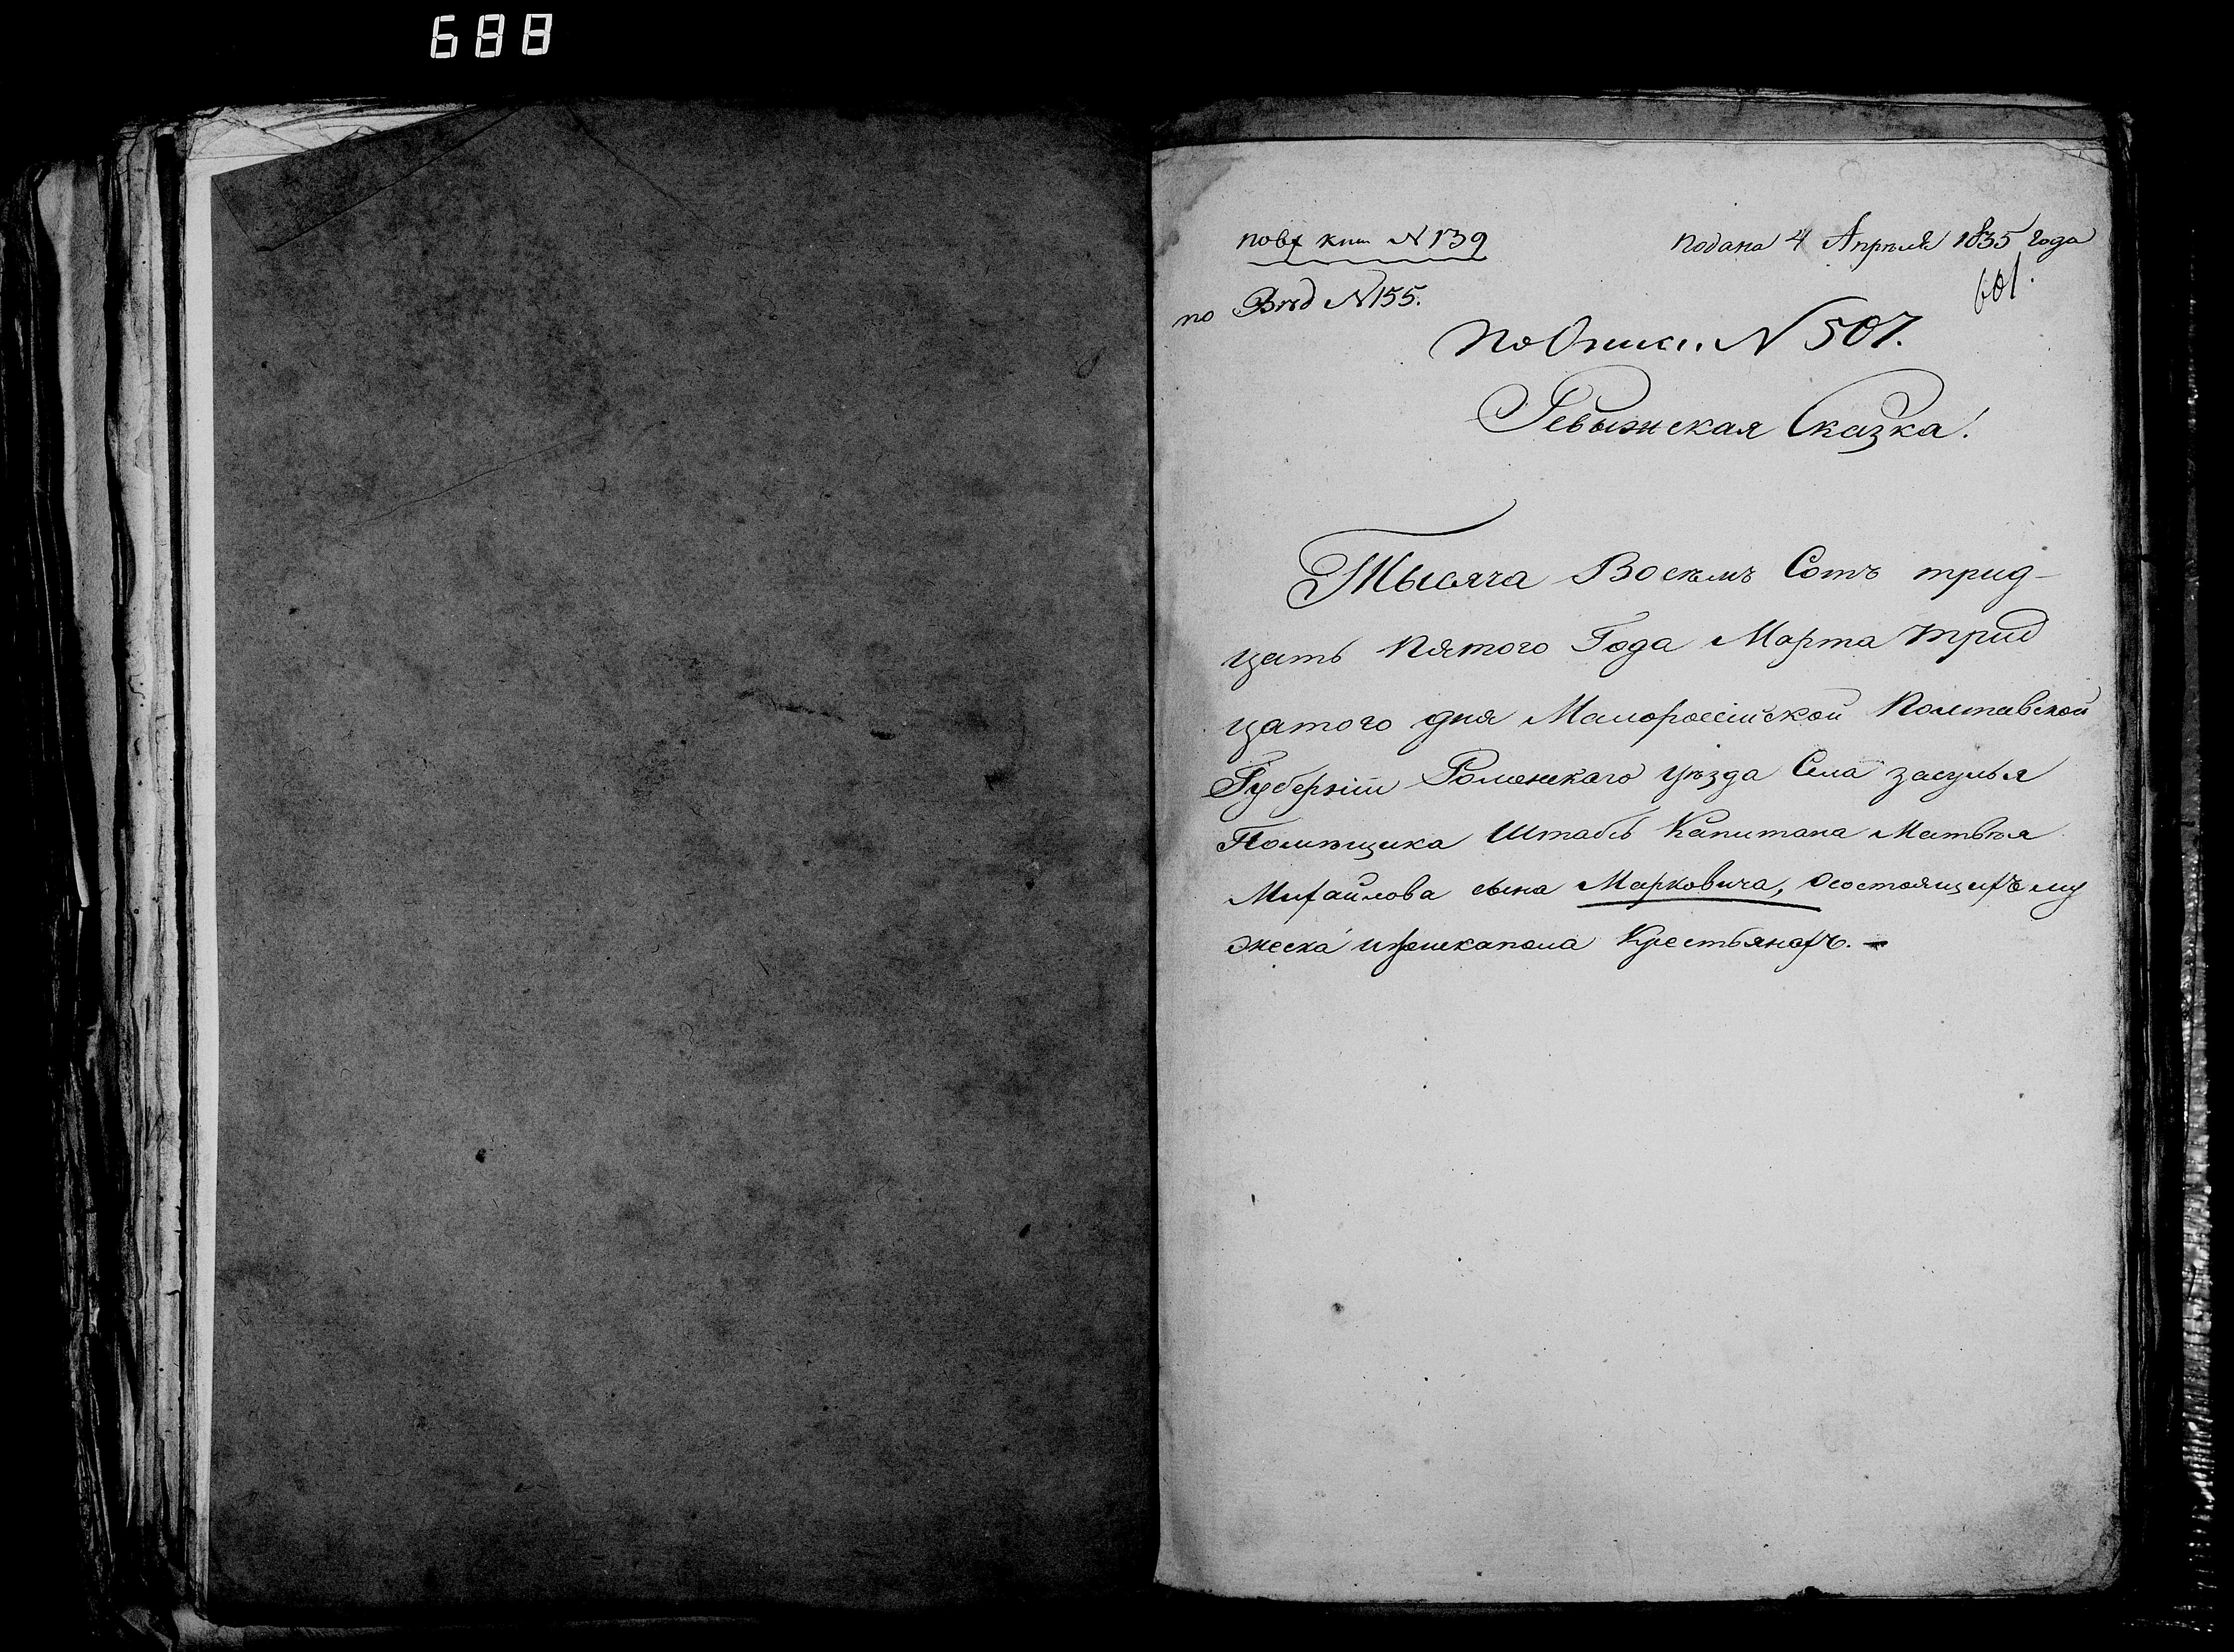 688
повх кни N 139
подана 4 Апреля 1835 года
601.
по Вѣд N 155.
По Описи. N 507.
Ревыжская Сказка.
Тысяча Восемъ Сотъ трид-
цать Пятого Года Марта трид
цатого дня Малороссійской Полтавской
Губерніи Роменскаго уѣзда Села засулья
Помѣщика Штабсъ Капитана Матвѣя
Михайлова сына Марковича, осостоящихъ му
жеска иженскапола Крестьянахъ. -